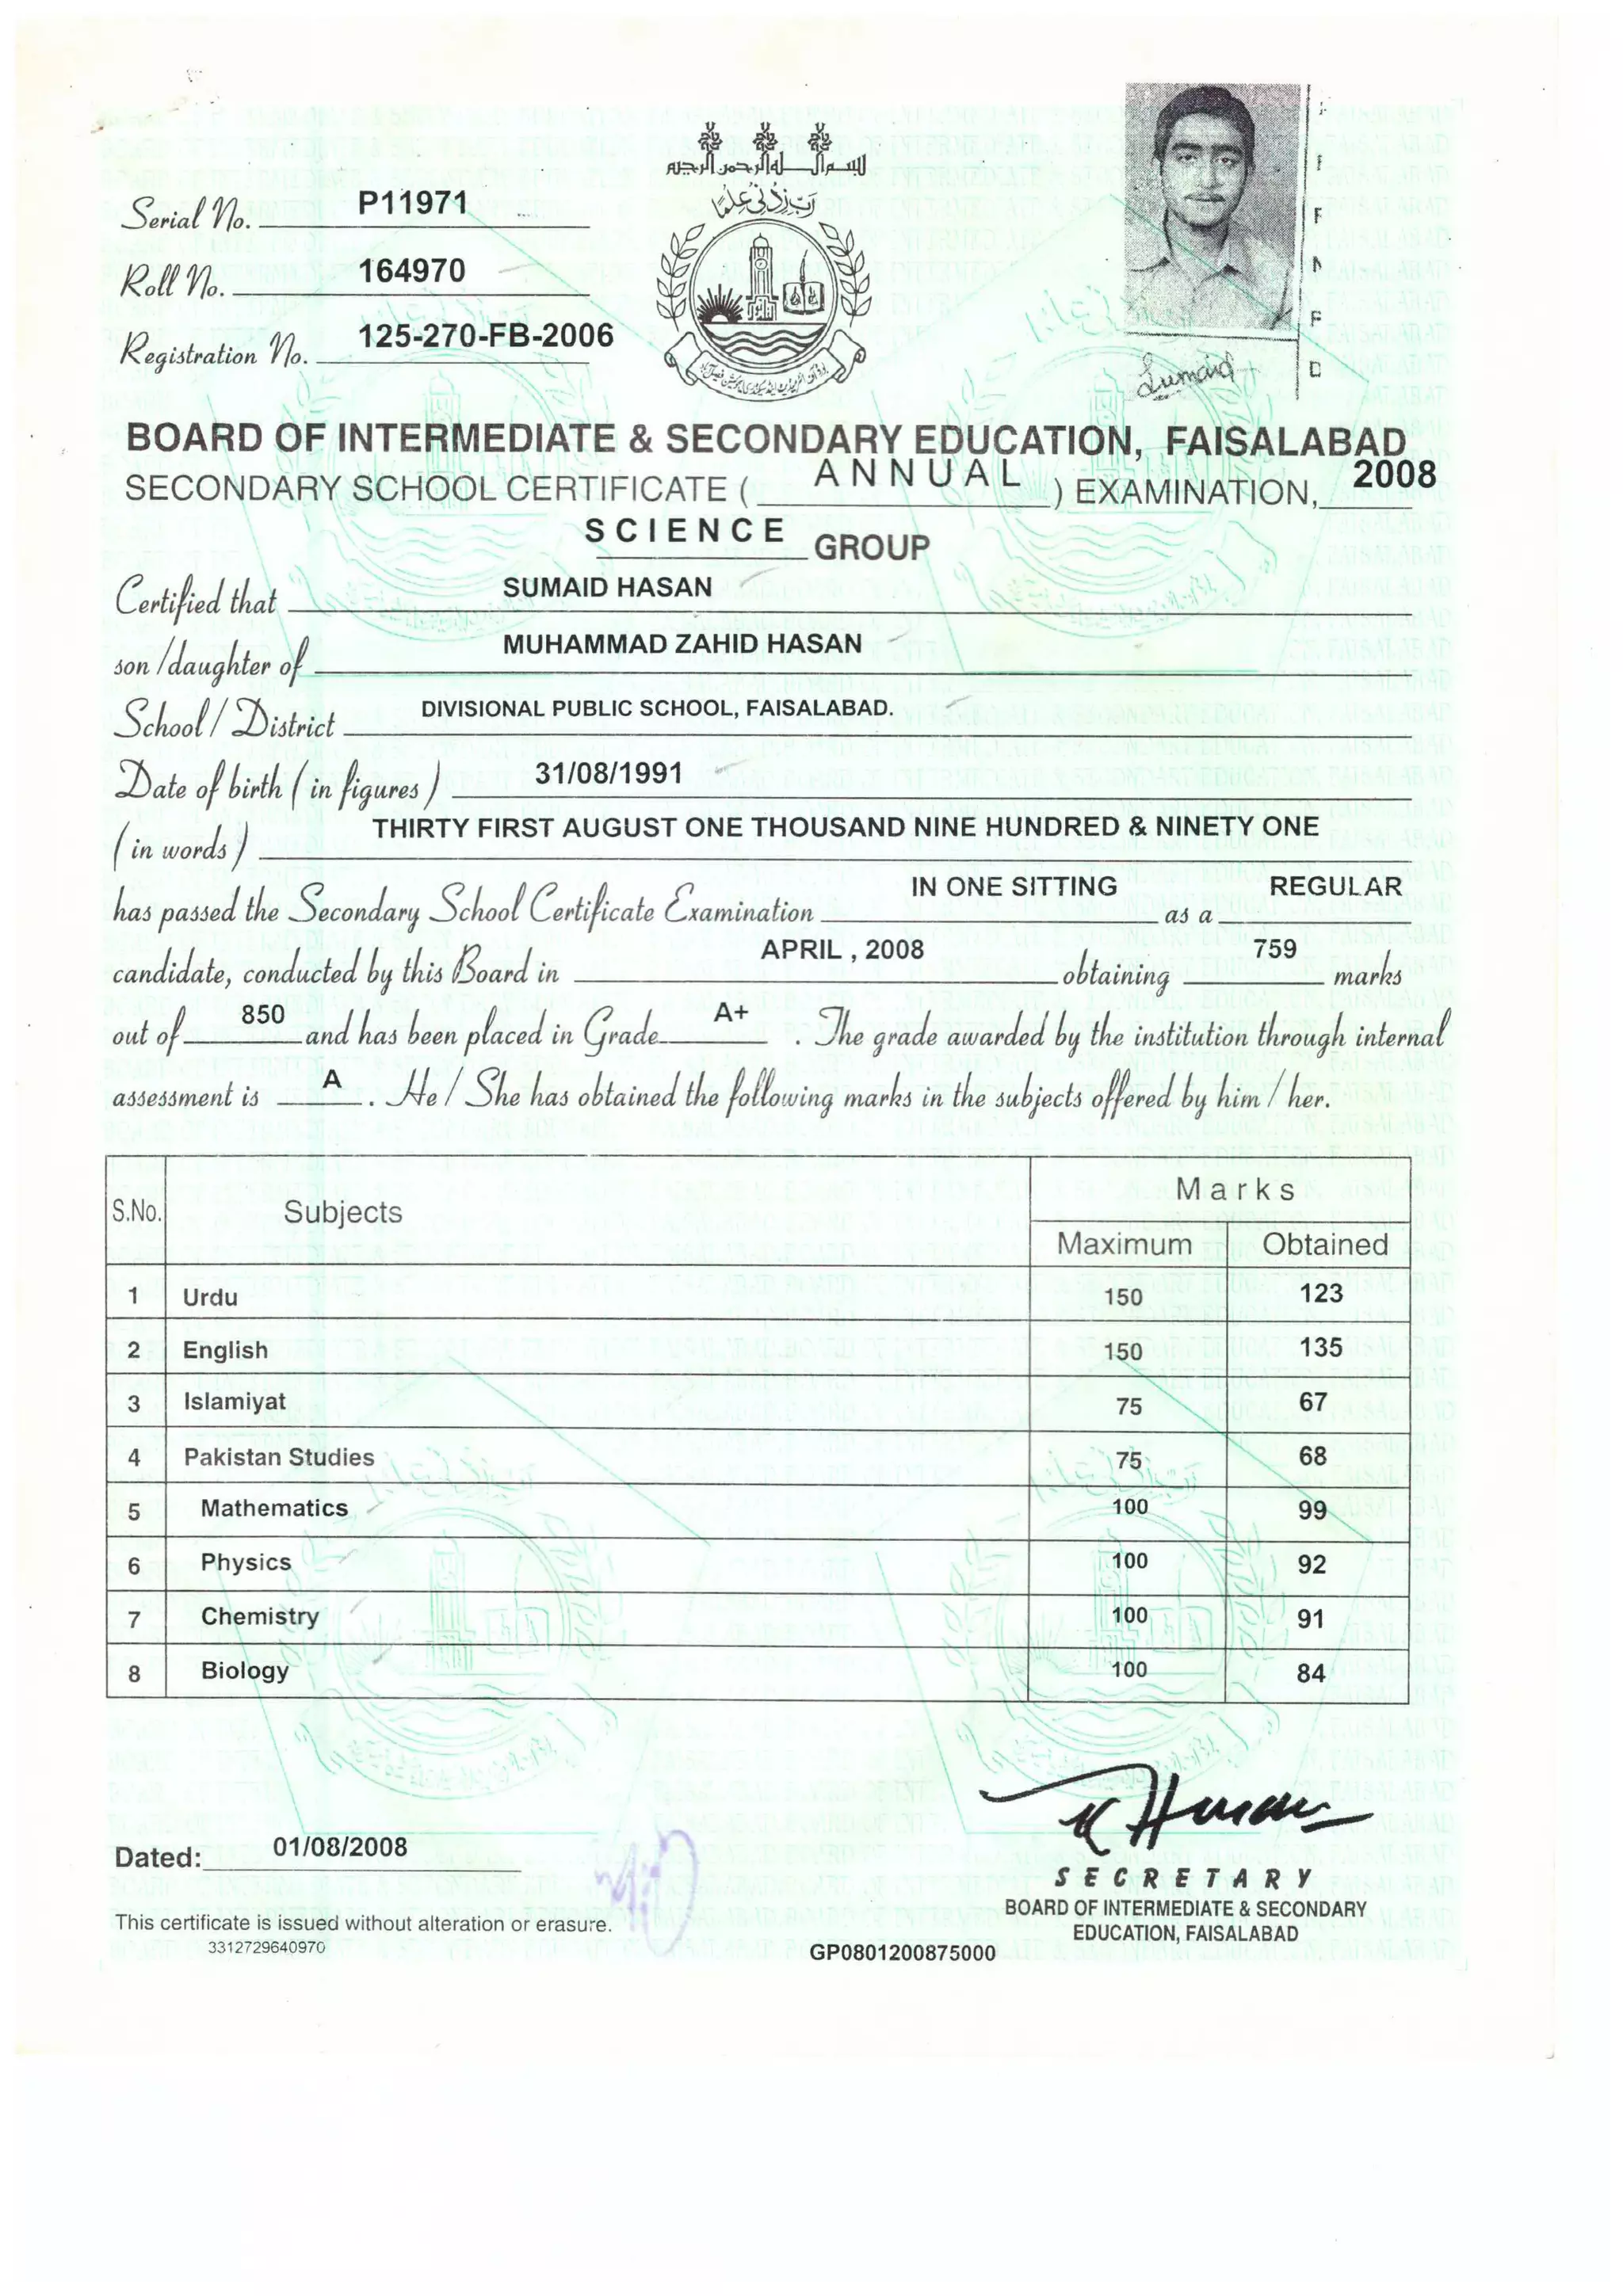 بسم الله الرحمن الرحيم
رب زدنی علما
Serial No. P11971
Roll No. 164970
Registration No. 125-270-FB-2006
Sumaid
BOARD OF INTERMEDIATE & SECONDARY EDUCATION, FAISALABAD
SECONDARY SCHOOL CERTIFICATE ( ANNUAL ) EXAMINATION, 2008
SCIENCE GROUP
Certified that SUMAID HASAN
son/daughter of MUHAMMAD ZAHID HASAN
School/District DIVISIONAL PUBLIC SCHOOL, FAISALABAD.
Date of birth (in figures) 31/08/1991
(in words) THIRTY FIRST AUGUST ONE THOUSAND NINE HUNDRED & NINETY ONE
has passed the Secondary School Certificate Examination IN ONE SITTING as a REGULAR
candidate, conducted by this Board in APRIL , 2008 obtaining 759 marks
out of 850 and has been placed in Grade A+ . The grade awarded by the institution through internal
assessment is A . He / She has obtained the following marks in the subjects offered by him / her.
S.No. Subjects Marks
Maximum Obtained
1 Urdu 150 123
2 English 150 135
3 Islamiyat 75 67
4 Pakistan Studies 75 68
5 Mathematics 100 99
6 Physics 100 92
7 Chemistry 100 91
8 Biology 100 84
Dated: 01/08/2008
SECRETARY
BOARD OF INTERMEDIATE & SECONDARY
EDUCATION, FAISALABAD
This certificate is issued without alteration or erasure.
3312729640970
GP0801200875000